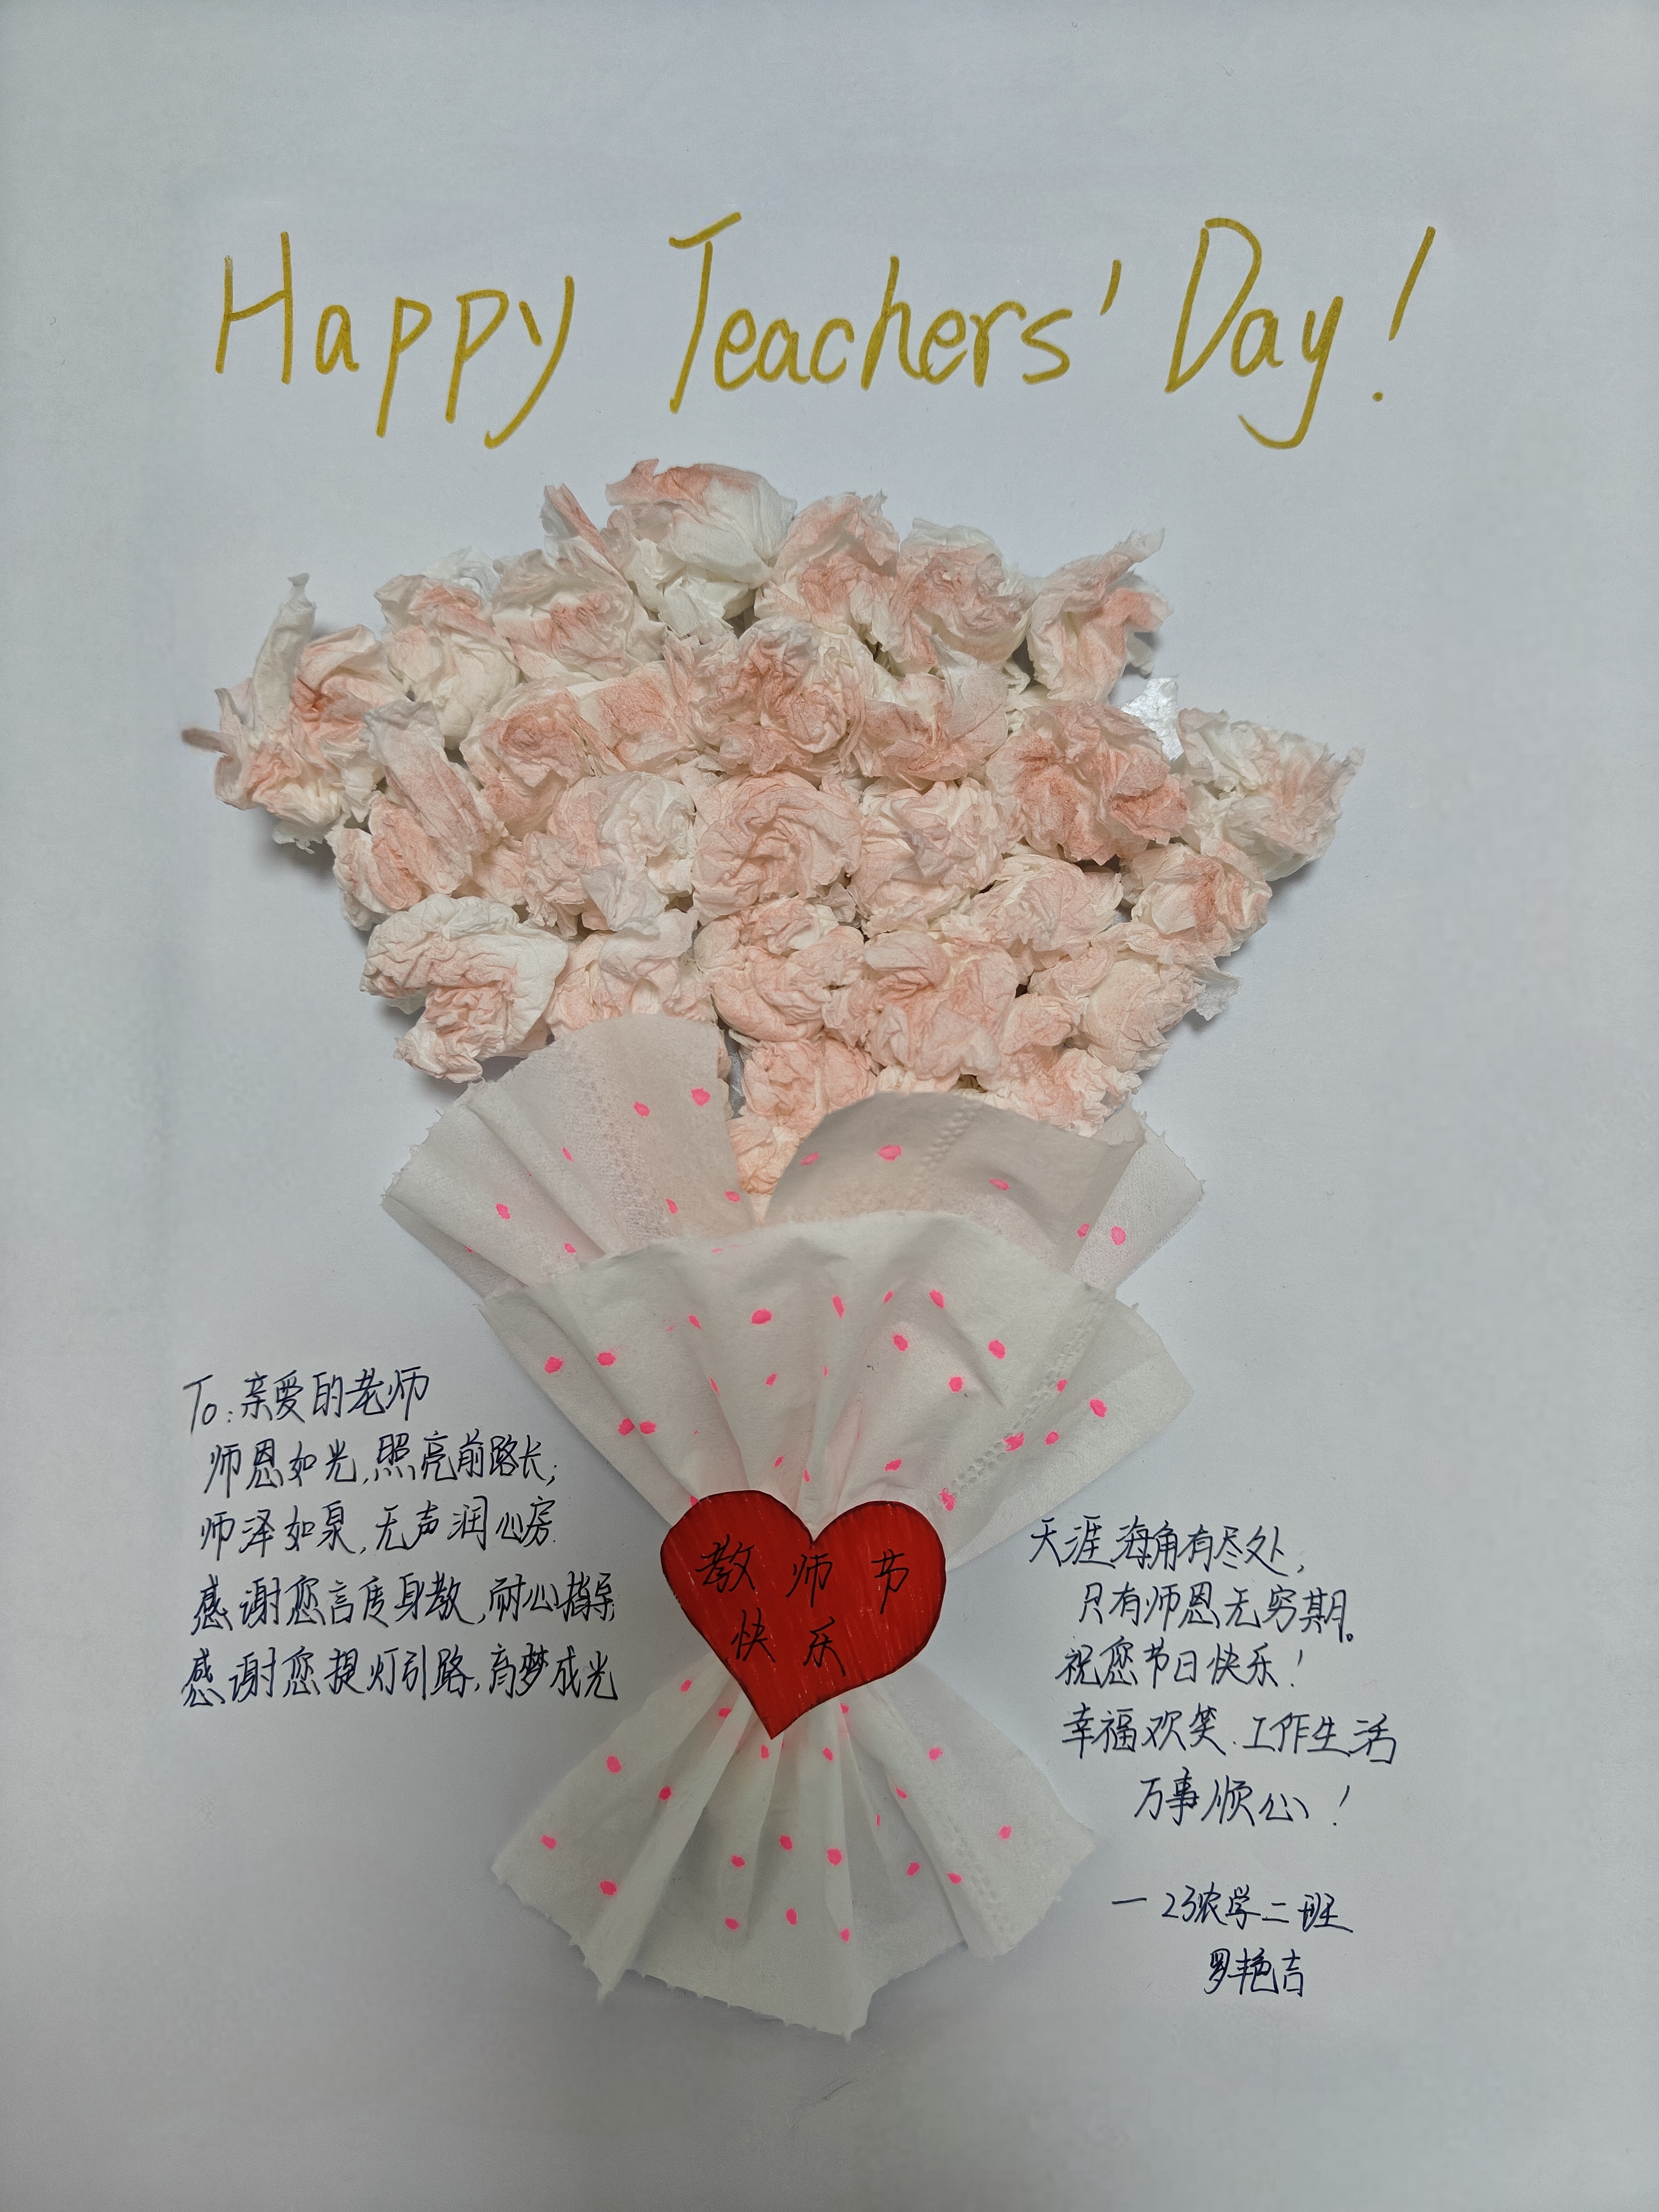 Happy Teachers' Day!
To:亲爱的老师
师恩如光,照亮前路长;
师泽如泉,无声润心房.
感谢您言传身教,耐心指导
感谢您提灯引路,育梦成光
教师节
快乐
天涯海角有尽处,
只有师恩无穷期。
祝您节日快乐!
幸福欢笑.工作生活
万事顺心!
—23农学二班
罗艳吉